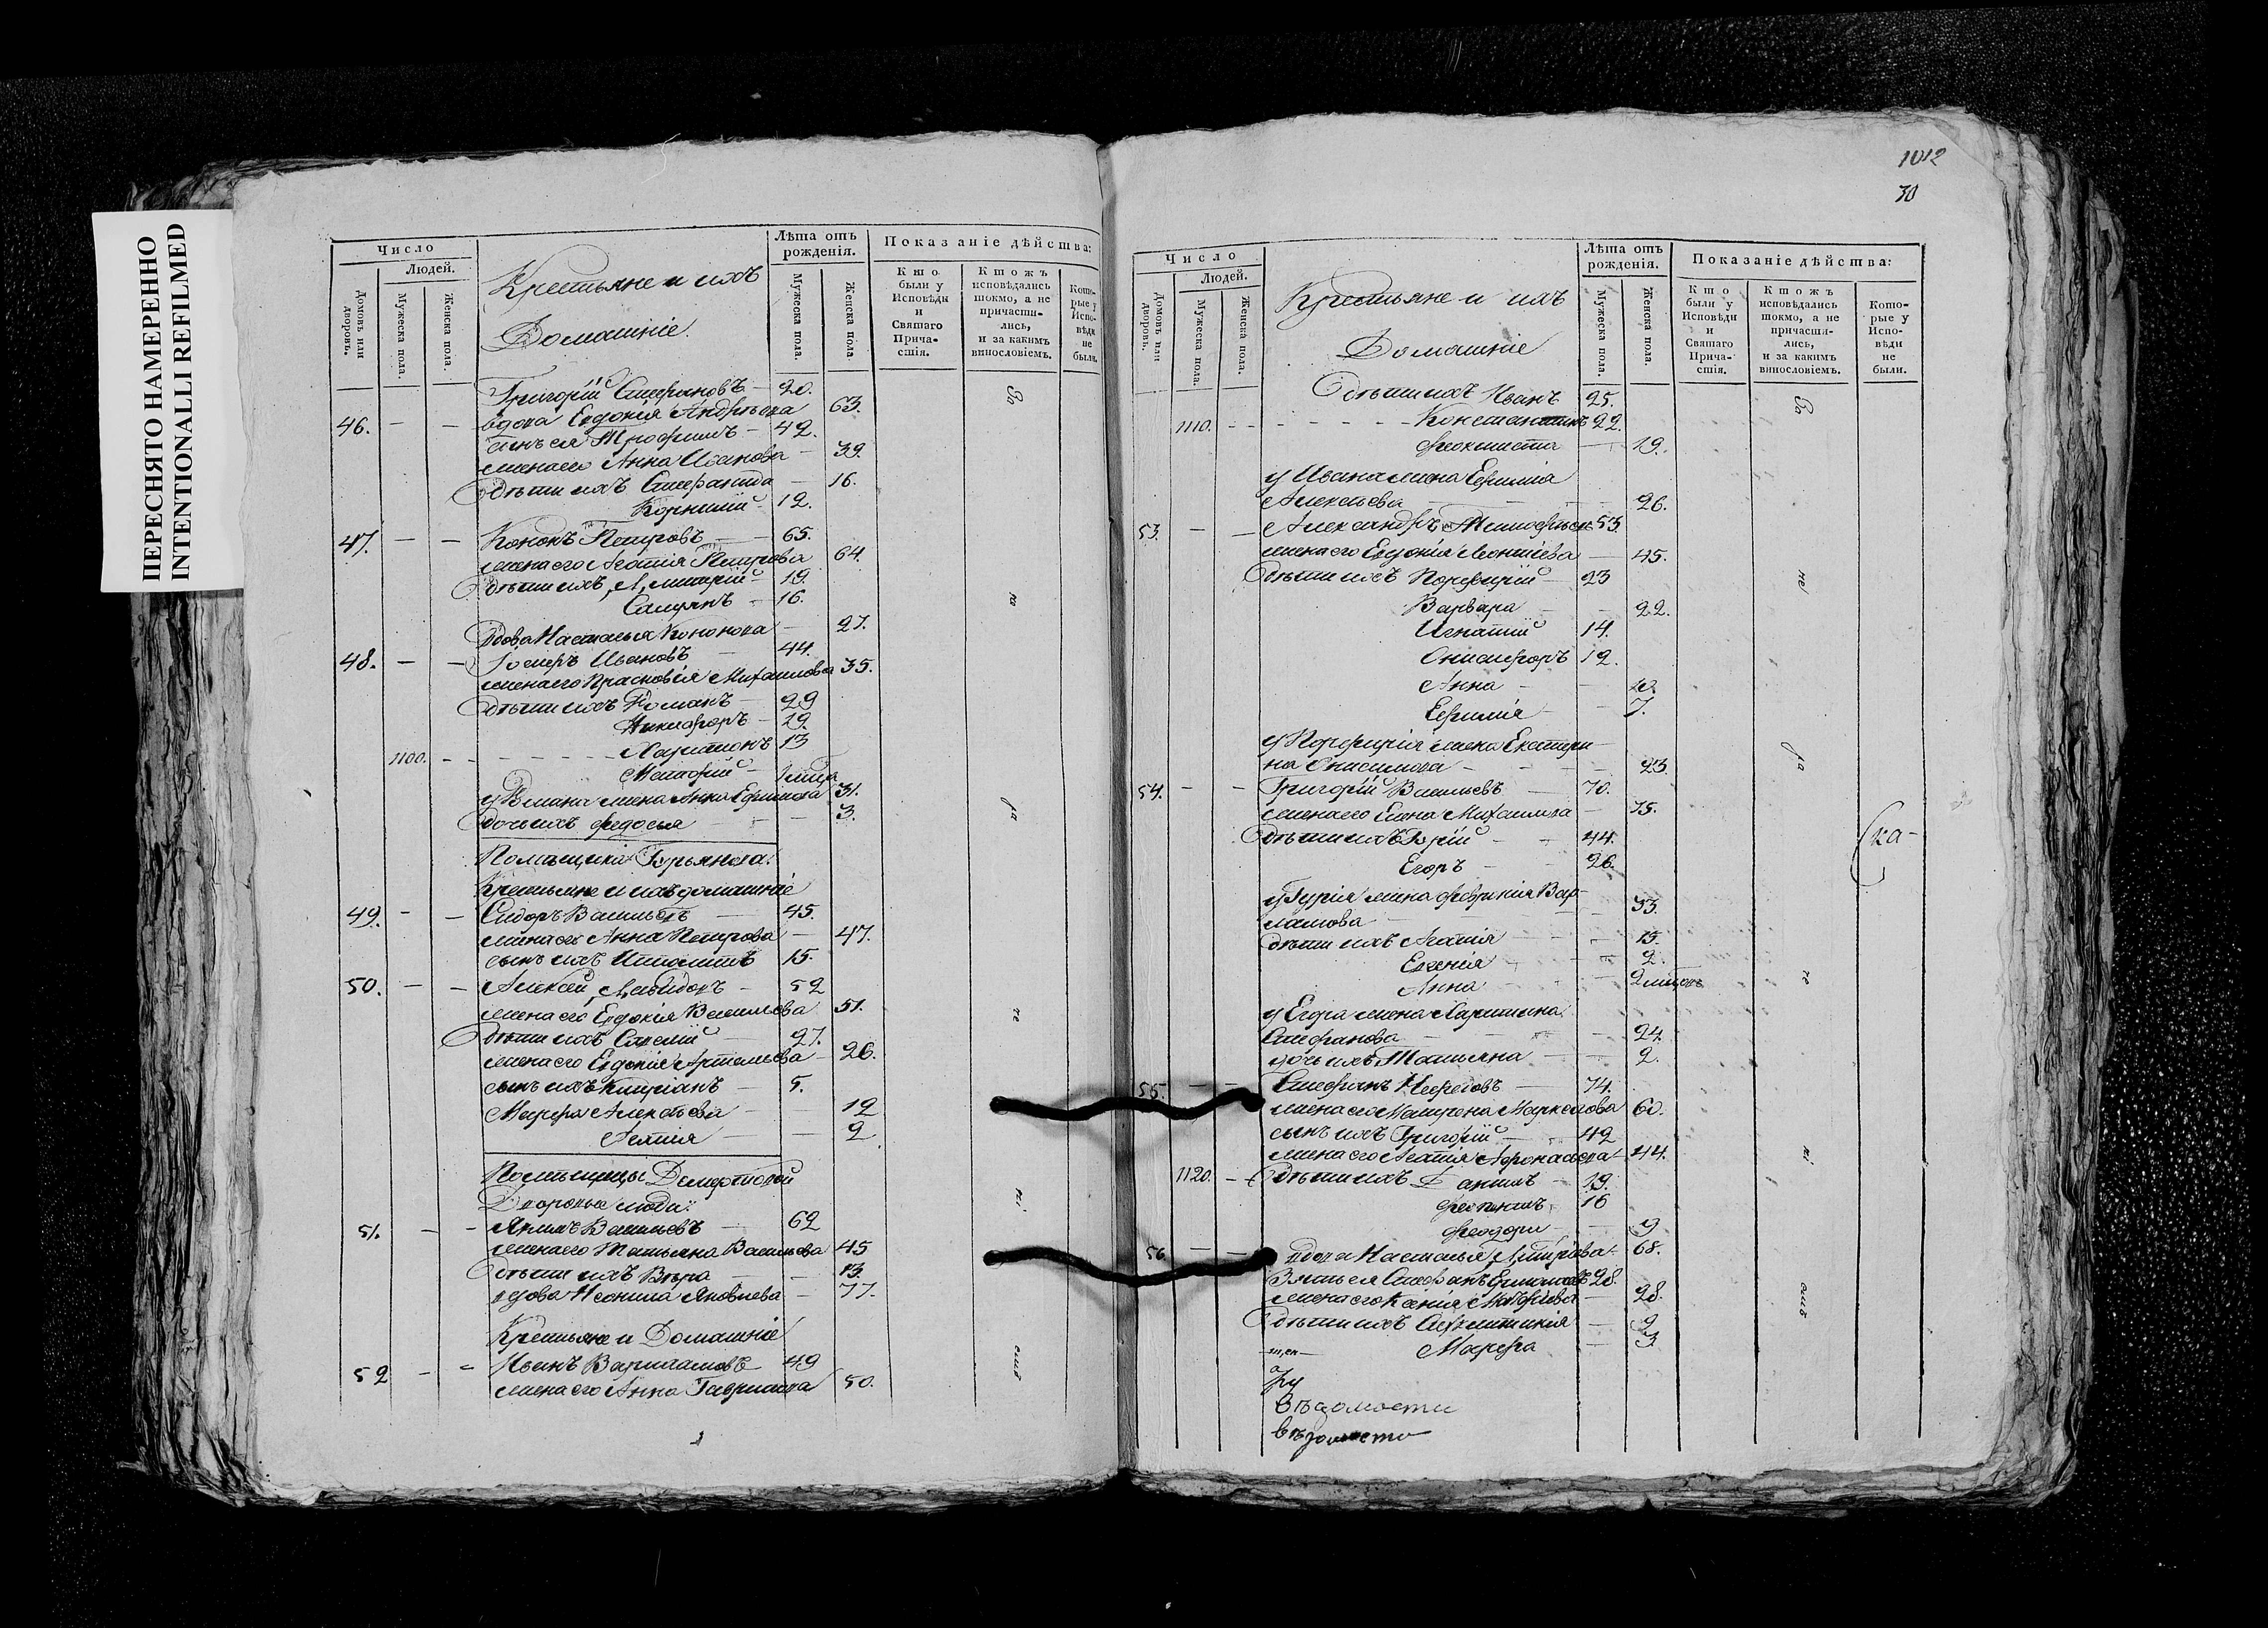 ПЕРЕСНЯТО НАМЕРЕННО
INTENTIONALLI REFILMED
Число
Людей.
Домовъ или дворовъ.
Мужеска пола.
Женска пола.
Крестьяне и ихъ
Домашніе.
Лѣта отъ рожденія.
Мужеска пола.
Женска пола.
Показаніе дѣйства:
Кто были у Исповѣди и Святаго Причастія.
Ктожъ исповѣдались токмо, а не причастились, и за какимъ винословіемъ.
Которые у Исповѣди не были.
Григорій Стефановъ – 20.
46. – – вдова Евдокія Андреева 63.
сынъ ея Трофимъ – 42.
жена его Анна Иванова – 39.
дѣти ихъ – 16.
Корнилій – 12.
47. – – Кононъ Петровъ – 65.
жена его Агафія Петрова 64.
дѣти ихъ Димитрій – 19.
16.
вдова Настасья Кононова – 27.
48. – – Ивановъ – 44.
жена его Прасковія Михаилова 35.
дѣти ихъ Романъ – 29
Никифоръ – 19.
1100. – – Харитонъ 13
1 мца
у Романа жена Анна Ефимова 31.
дочь ихъ Федосья – 3.
Помѣщика Гурьянова.
Крестьяне и ихъ домашніе
49. – – Сидоръ Васильевъ – 45.
жена его Анна Петрова – 47.
сынъ ихъ Ипполитъ 15.
50. – – Алексей – 52
жена его Евдокія Васильева 51.
дѣти ихъ – 27.
жена его Евдокія Артемьева – 26.
сынъ ихъ Кипріанъ – 5.
Марфа Алексѣева – 12
– 2
Помѣщицы
Дворовые люди:
51. – – Васильевъ – 62
жена его Татьяна Васильева 45
дѣти ихъ Вѣра – 13.
вдова Неонила Яковлева – 77.
Крестьяне и Домашніе
52 – – Иванъ Варлаамовъ 49
жена его Анна Гаврилова 50.
1012
30
Число
Людей.
Домовъ или дворовъ.
Мужеска пола.
Женска пола.
Крестьяне и ихъ
Домашніе
Лѣта отъ рожденія.
Мужеска пола.
Женска пола.
Показаніе дѣйства:
Кто были у Исповѣди и Святаго Причастія.
Ктожъ исповѣдались токмо, а не причастились, и за какимъ винословіемъ.
Которые у Исповѣди не были.
дѣти ихъ Иванъ 25.
1110. – – Константинъ 22.
Феоктиста – 19.
у Ивана жена Евфимія
Алексѣева – 26.
53. – – Александръ Тимофѣевъ 53.
жена его Евдокія Леонтіева – 45.
дѣти ихъ Порфирій – 23
Варвара – 22.
Игнатій 14.
Онисифоръ 12.
Анна –
Евфимія – 7.
у Порфирія жена Екатери-
на Онисимова – 23.
54. – – Григорій Васильевъ – 70.
жена его Елена Михаилова – 75.
дѣти ихъ Гурій – 44.
Егоръ – 26.
у Гурія жена Февронія Вар-
лаамова – 33.
дѣти ихъ Агафія – 15.
Евгенія – 2.
Анна – 2 мцовъ
у Егора жена Харитина
Стефанова – 24.
дочь ихъ Татіяна – 2.
55. – – Стефанъ Нефедовъ – 74.
жена его Матрона Маркелова 60.
сынъ ихъ Григорій – 42
жена его Агафія Афонасьева 44.
1120. – – дѣти ихъ – 19.
16
Феодора – 9
56. – – вдова Настасья 68.
Зять ея Стефанъ 28.
жена его Ксенія – 28.
дѣти ихъ – 9
Марфа – 3
ка-
вѣдомости
вѣдомости